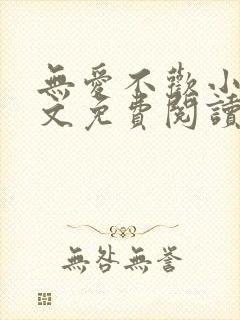 無愛不歡小
文免費閱讀
無咎無譽